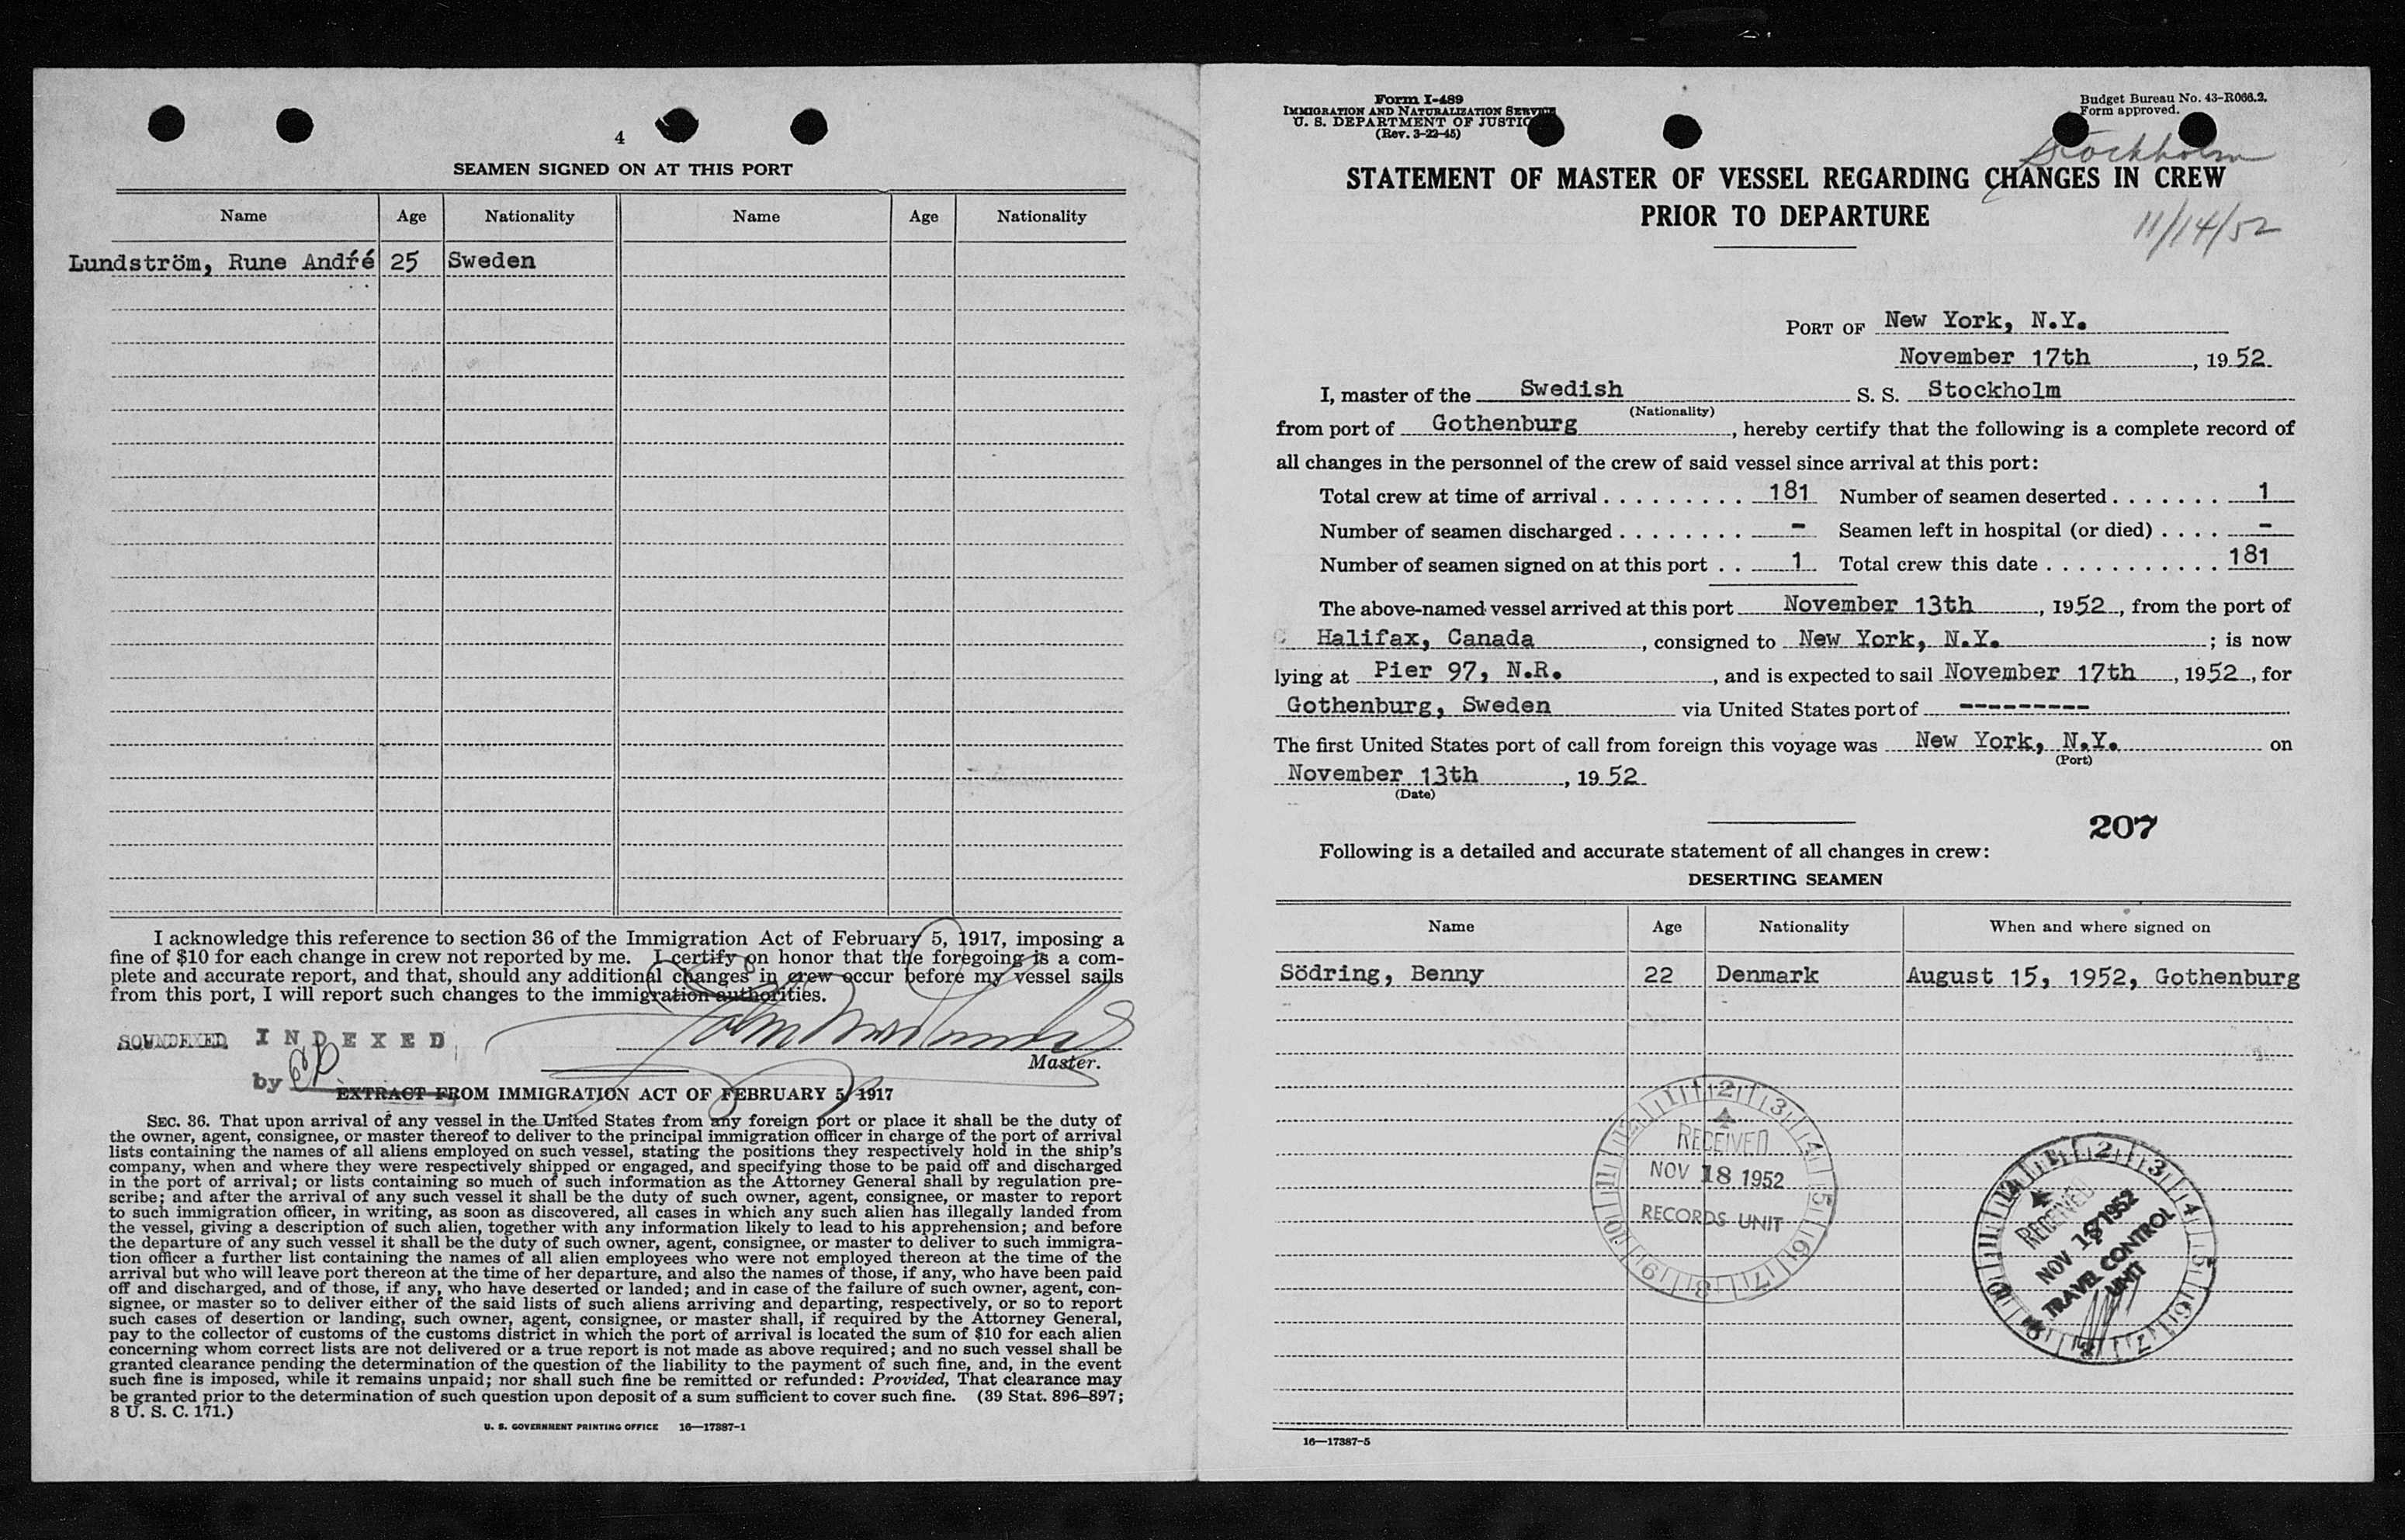 4
SEAMEN SIGNED ON AT THIS PORT
Name Age Nationality Name Age Nationality
Lundström, Rune André 25 Sweden
I acknowledge this reference to section 36 of the Immigration Act of February 5, 1917, imposing a
fine of $10 for each change in crew not reported by me. I certify on honor that the foregoing is a com-
plete and accurate report, and that, should any additional changes in crew occur before my vessel sails
from this port, I will report such changes to the immigration authorities.
SOUNDEXED INDEXED
Master.
by
EXTRACT FROM IMMIGRATION ACT OF FEBRUARY 5, 1917
SEC. 36. That upon arrival of any vessel in the United States from any foreign port or place it shall be the duty of
the owner, agent, consignee, or master thereof to deliver to the principal immigration officer in charge of the port of arrival
lists containing the names of all aliens employed on such vessel, stating the positions they respectively hold in the ship's
company, when and where they were respectively shipped or engaged, and specifying those to be paid off and discharged
in the port of arrival; or lists containing so much of such information as the Attorney General shall by regulation pre-
scribe; and after the arrival of any such vessel it shall be the duty of such owner, agent, consignee, or master to report
to such immigration officer, in writing, as soon as discovered, all cases in which any such alien has illegally landed from
the vessel, giving a description of such alien, together with any information likely to lead to his apprehension; and before
the departure of any such vessel it shall be the duty of such owner, agent, consignee, or master to deliver to such immigra-
tion officer a further list containing the names of all alien employees who were not employed thereon at the time of the
arrival but who will leave port thereon at the time of her departure, and also the names of those, if any, who have been paid
off and discharged, and of those, if any, who have deserted or landed; and in case of the failure of such owner, agent, con-
signee, or master so to deliver either of the said lists of such aliens arriving and departing, respectively, or so to report
such cases of desertion or landing, such owner, agent, consignee, or master shall, if required by the Attorney General,
pay to the collector of customs of the customs district in which the port of arrival is located the sum of $10 for each alien
concerning whom correct lists are not delivered or a true report is not made as above required; and no such vessel shall be
granted clearance pending the determination of the question of the liability to the payment of such fine, and, in the event
such fine is imposed, while it remains unpaid; nor shall such fine be remitted or refunded: Provided, That clearance may
be granted prior to the determination of such question upon deposit of a sum sufficient to cover such fine. (39 Stat. 896–897;
8 U. S. C. 171.)
U. S. GOVERNMENT PRINTING OFFICE 16—17387-1
Form I-489
IMMIGRATION AND NATURALIZATION SERVICE
U. S. DEPARTMENT OF JUSTICE
(Rev. 3-22-45)
Budget Bureau No. 43-R066.2.
Form approved.
Stockholm
STATEMENT OF MASTER OF VESSEL REGARDING CHANGES IN CREW
PRIOR TO DEPARTURE
11/14/52
PORT OF New York, N.Y.
November 17th, 1952.
I, master of the Swedish S. S. Stockholm
(Nationality)
from port of Gothenburg, hereby certify that the following is a complete record of
all changes in the personnel of the crew of said vessel since arrival at this port:
Total crew at time of arrival . . . . . . . . . 181 Number of seamen deserted . . . . . . . 1
Number of seamen discharged . . . . . . . . - Seamen left in hospital (or died) . . . . -
Number of seamen signed on at this port . . 1 Total crew this date . . . . . . . . . . . 181
The above-named vessel arrived at this port November 13th, 1952, from the port of
Halifax, Canada, consigned to New York, N.Y. ; is now
lying at Pier 97, N.R., and is expected to sail November 17th, 1952, for
Gothenburg, Sweden via United States port of ---------
The first United States port of call from foreign this voyage was New York, N.Y. on
(Port)
November 13th, 1952
(Date)
207
Following is a detailed and accurate statement of all changes in crew:
DESERTING SEAMEN
Name Age Nationality When and where signed on
Södring, Benny 22 Denmark August 15, 1952, Gothenburg
RECEIVED
NOV 18 1952
RECORDS UNIT
RECEIVED
NOV 1952
TRAVEL CONTROL
UNIT
16—17387-5